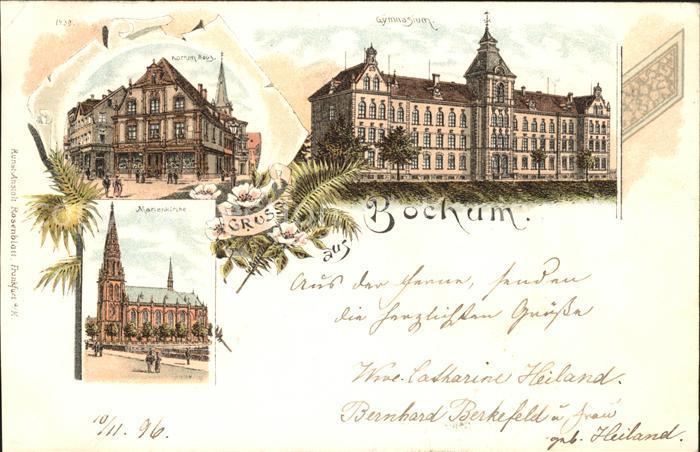 1438.
Kortum Haus.
Gymnasium.
Marienkirche.
GRUSS
aus
Bochum.
Kunst-Anstalt Rosenblatt, Frankfurt a/M.
Aus der Ferne, senden
die herzlichsten Grüße
Wwe. Catharine Heiland.
Bernhard Berkefeld u. Frau
geb. Heiland.
10/11. 96.